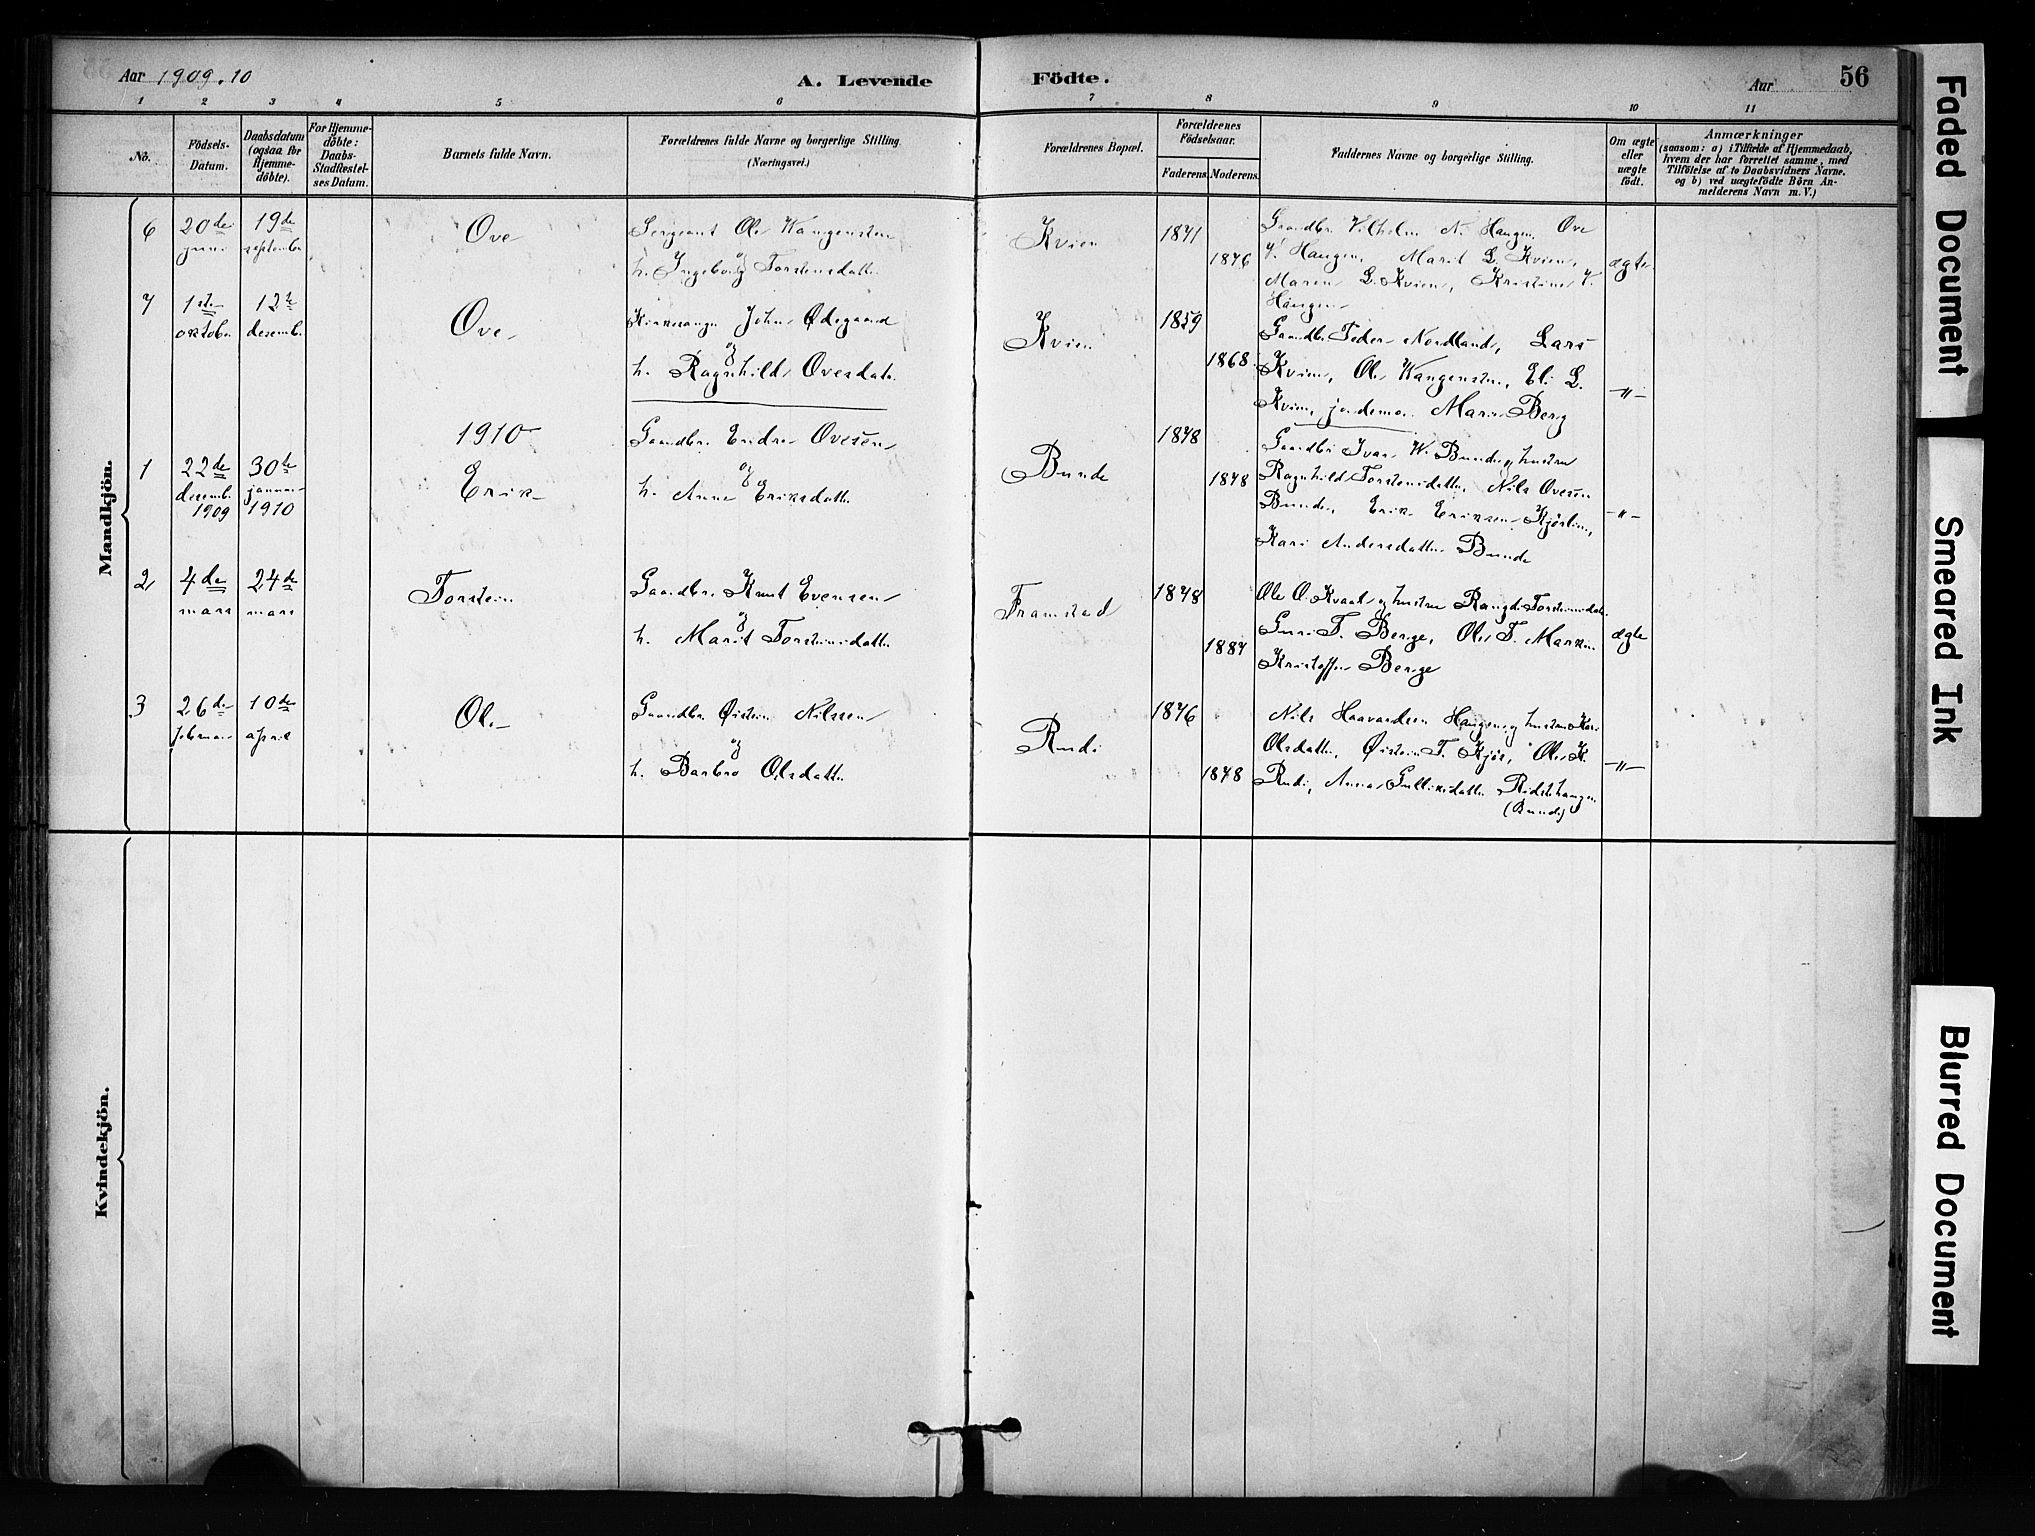 Aar 1909.10
A. Levende
Födte.
Aar
56
1 2 3 4 5 6 7 8 9 10 11
No.
Födsels-
Datum.
Daabsdatum
(ogsaa for
Hjemme-
döbte).
For Hjemme-
döbte:
Daabs-
Stadfæstel-
ses Datum.
Barnets fulde Navn.
Forældrenes fulde Navne og borgerlige Stilling.
(Næringsvei.)
Forældrenes Bopæl.
Forældrenes
Födselsaar.
Faderens.
Moderens.
Faddernes Navne og borgerlige Stilling.
Om ægte
eller
uægte
födt.
Anmærkninger
(saasom: a) i Tilfælde af Hjemmedaab,
hvem der har forrettet samme, med
Tilföielse af to Daabsvidners Navne.
og b) ved uægtefödte Börn An-
melderens Navn m. V.)
Mandkjön.
6
20de
juni
19de
septembr
Ove
Sergeant Ole Wangensten
og
h. Ingeborg Torstensdatter
Kvien
1871
1876
Gaardbr. Vilhelm N. Haugen, Ove
V. Haugen, Marit L. Kvien,
Maren L. Kvien, Kristine V.
Haugen
ægte
7
1ste
oktober
12te
desemb.
Ove
Kirkesanger John Ødegaard
og
h. Ragnhild Ovesdatr.
Kvien
1859
1868
Gaardbr. Peder Nordland, Lars
Kvien, Ole Wangensten, Eli L.
Kvien, jordemor Marie Berg
-"-
1910
1
22de
desemb.
1909
30te
januar
1910
Erik
Gaardbr. Endre Ovesen
og
h. Anne Eriksdatter
Bunde
1878
1878
Gaardbr. Ivar W. Bunde og hustru
Ragnhild Torstensdatter, Nils Ovesen
Bunde, Erik Eriksen Kjörlien,
Kari Andersdatter Bunde
-"-
2
4de
mars
24de
mars
Torstein
Gaardbr. Knut Evensen
og
h. Marit Torsteinsdatter
Framstad
1878
1887
Ole O. Kvaal og hustru Rangdi Torsteinsdatr.
Guri T. Berge, Ole T.
Kristoffer Berge
ægte
3
26de
februar
10de
april
Ole
Gaardbr. Øistein Nilssen
og
h. Barbro Olsdatter
Rudi
1876
1878
Nils Haavardsen Haugen og hustru Kari
Olsdatter, Øistein T. Kjös, Ole K.
Rudi, Anna Gulliksdatter
(Bunde)
-"-
Kvindekjön.
Faded Document
Smeared Ink
Blurred Document